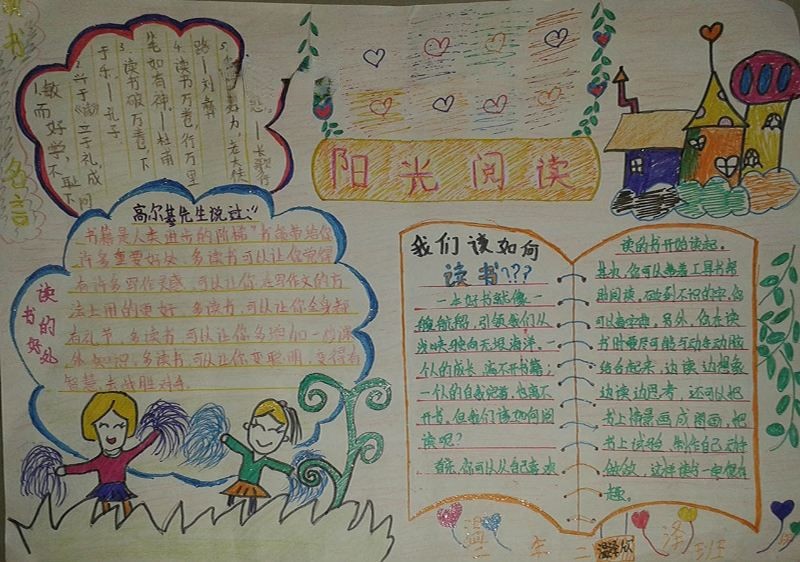 名言
1.敏而好学,不耻下问
2.兴于《诗》立于礼,成
于乐,—孔子
3.读书破万卷,下
笔如有神,—杜甫
4.读书万卷,行万里
路—刘彝
5.
阳光阅读
高尔基先生说过:"
书籍是人类进步的阶梯"书能带给你
许多重要好处,多读书可以让你觉得
有许多写作灵感,可以让你在写作文的方
法上用的更好,多读书,可以让你全身都
有礼节,多读书,可以让你多增加一些课
外知识,多读书,可以让你变聪明,变得有
智慧,去战胜对手。
读书的好处
我们该如何
读书???
一本好书就像一
艘航船,引领我们从
浅狭驶向无垠海洋,一
个人的成长,离不开书籍;
一个人的自我完善,也离不
开书,但我们该如何阅
读呢?
首先,你可以从自己喜欢
读的书开始读起。
其次,你可以准备工具书帮
助阅读,碰到不识的字,你
可以查字典,另外,你在读
书时要尽可能与动手动脑
结合起来,边读边想象
边读边思考,还可以把
书上情景画成图画,把
书上试验,制作自己动手
做做,这样读书一定很有
趣。
二 班